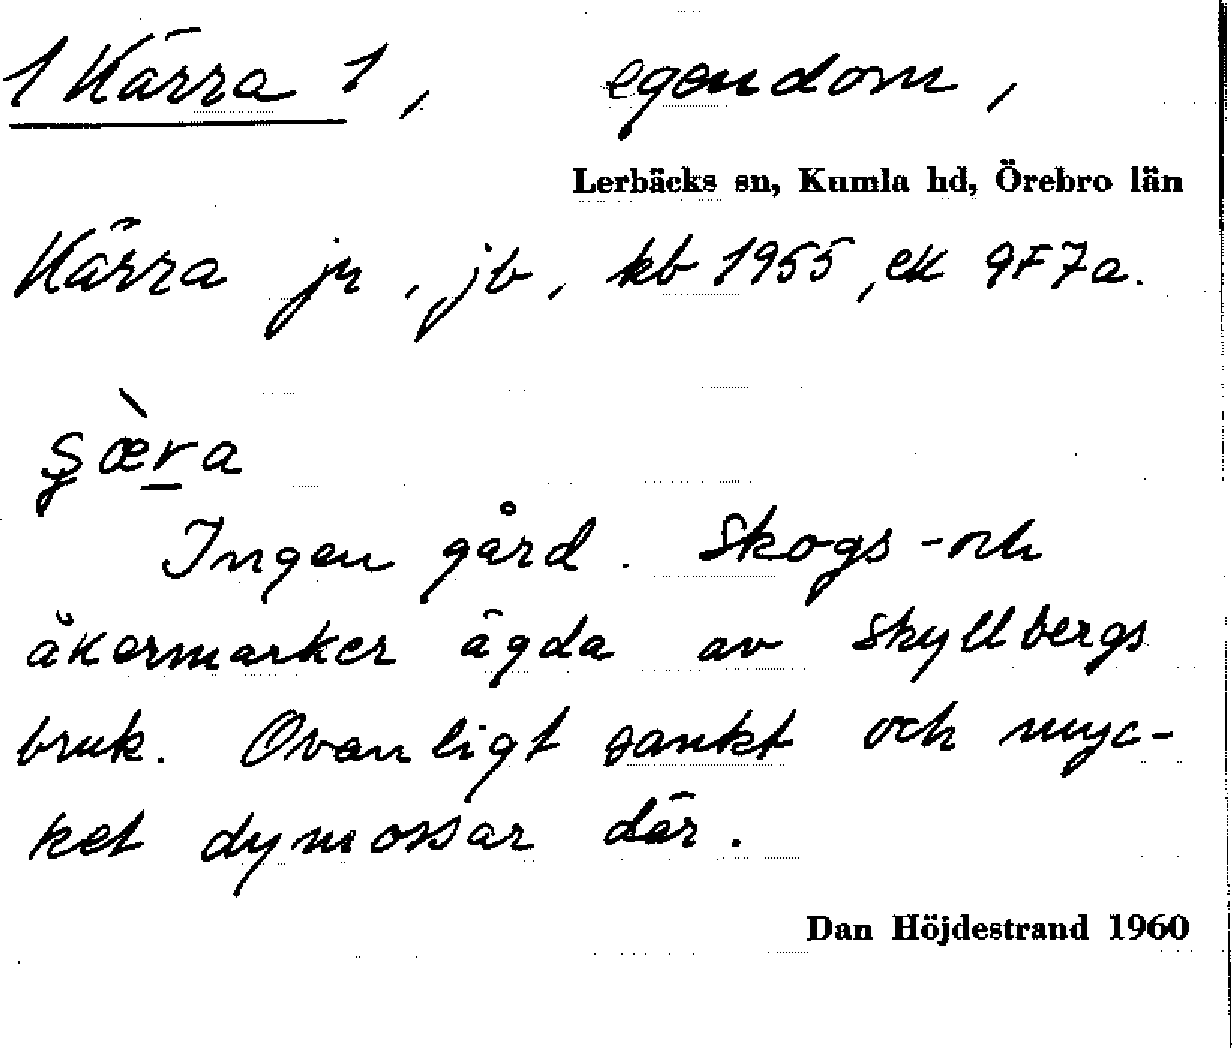 1 Kärra 1, egendom,
Lerbäcks sn, Kumla hd, Örebro län
Kärra jr, jb, kb 1955, ek 9F7a.
şæ̀ṟa
Ingen gård. Skogs- och
åkermarker ägda av Skyllbergs
bruk. Ovanligt sankt och myc-
ket dymossar där.
Dan Höjdestrand 1960